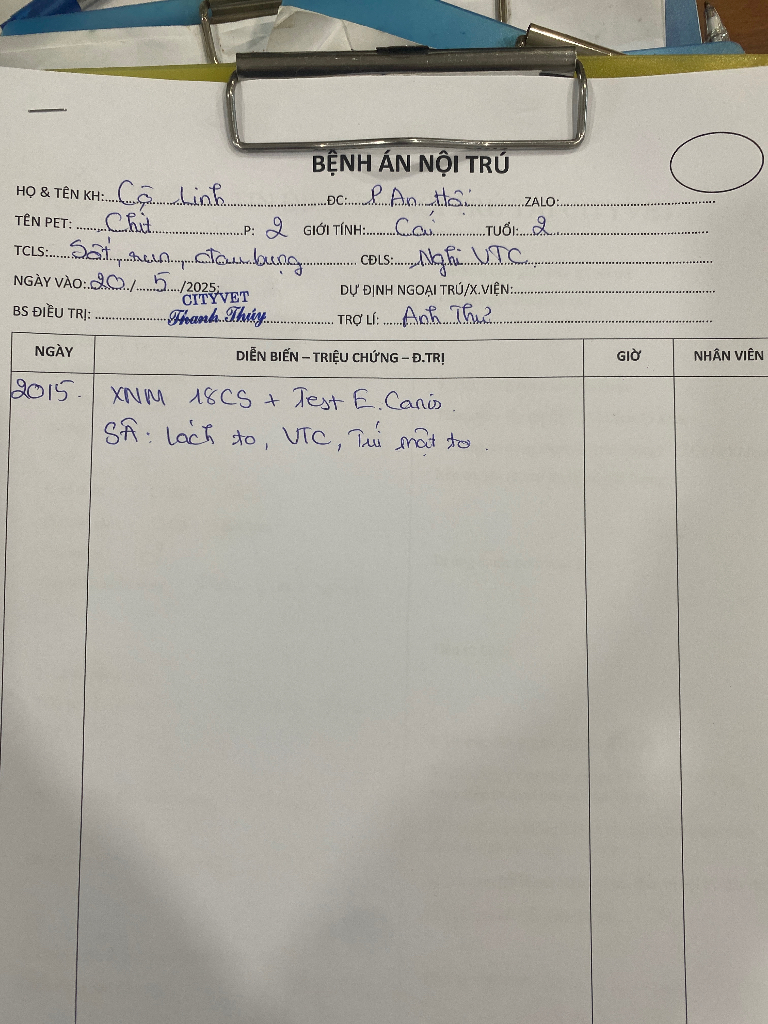 BỆNH ÁN NỘI TRÚ
HỌ & TÊN KH: Cô Linh ĐC: P An Hội ZALO:
TÊN PET: Chit P: 2 GIỚI TÍNH: Cái TUỔI: 2
TCLS: Sốt, run, đau bụng CĐLS: Nghi VTC
NGÀY VÀO: 20 / 5 /2025; DỰ ĐỊNH NGOẠI TRÚ/X.VIỆN:
CITYVET
BS ĐIỀU TRỊ: Thanh Thúy TRỢ LÍ: Anh Thư
NGÀY DIỄN BIẾN – TRIỆU CHỨNG – Đ.TRỊ GIỜ NHÂN VIÊN
20/5. XNM 18CS + Test E.Canis.
SÂ: lách to, VTC, Túi mật to.